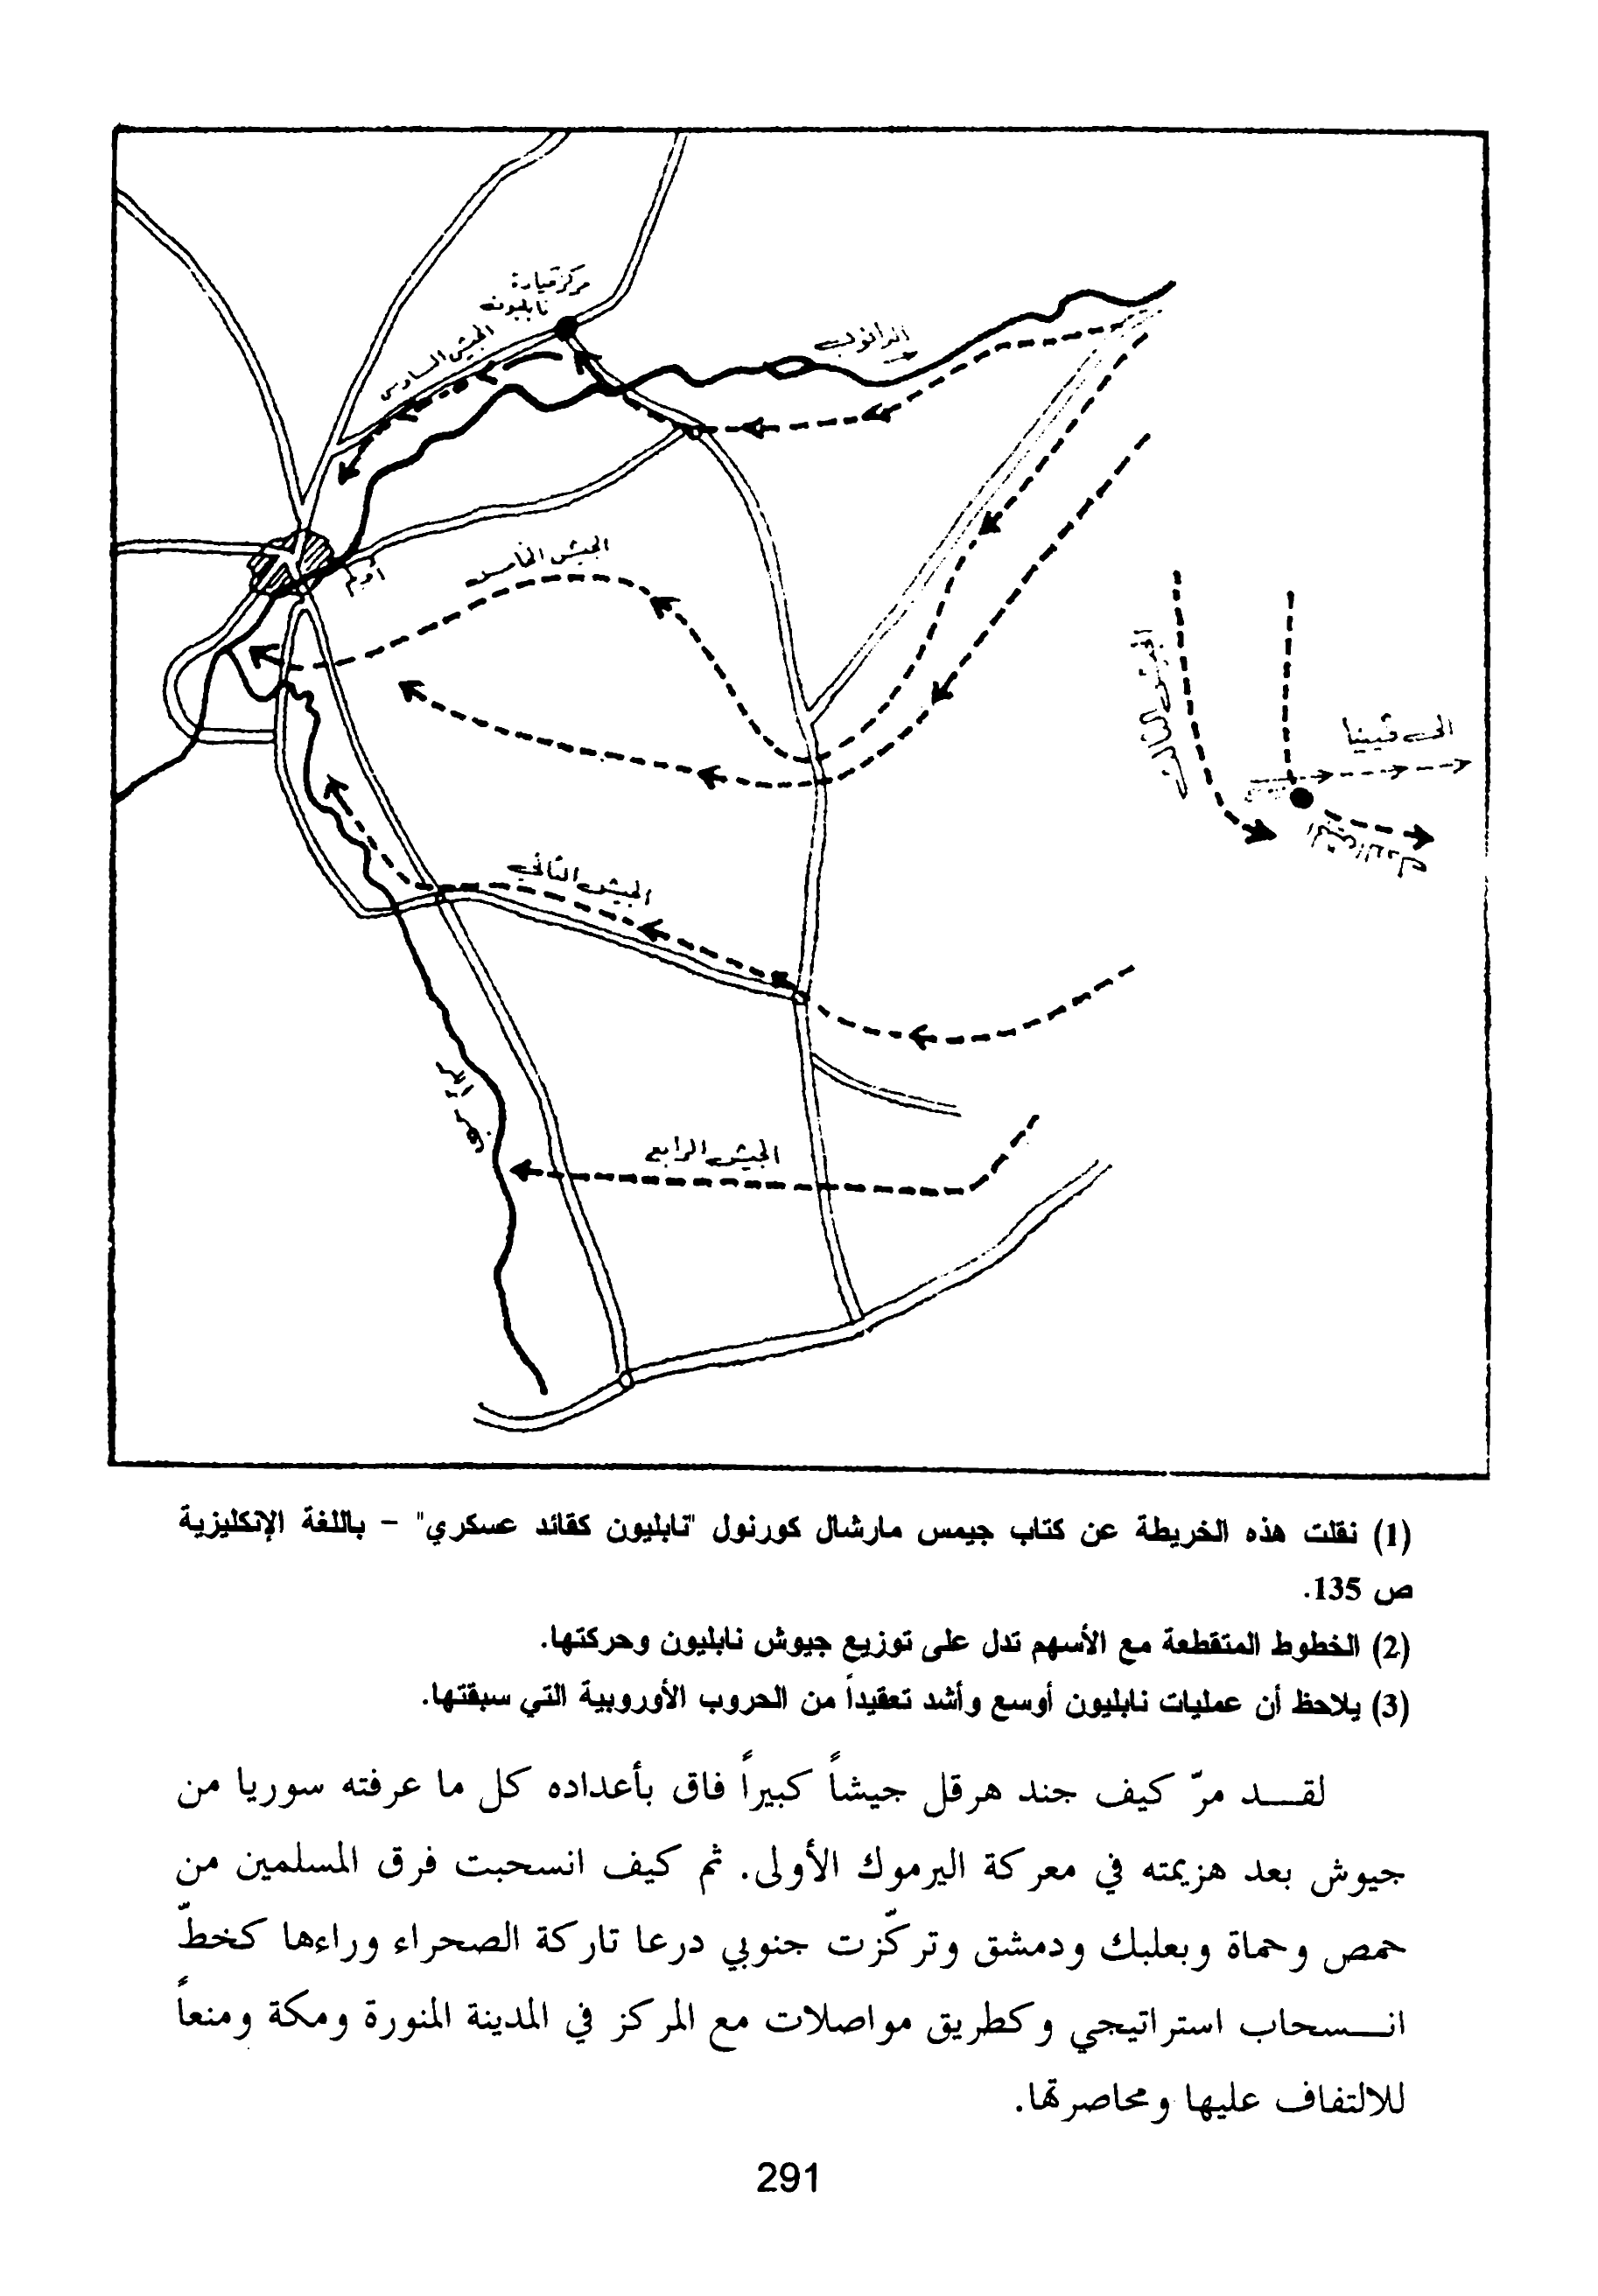 مركز قيادة
نابليون
الجيش السادس
الدانوب
الجيش الخامس
أولم
الجيش الثالث
الى فيينا
الجيش الثاني
نهر
الجيش الرابع
(1) نقلت هذه الخريطة عن كتاب جيمس مارشال كورنول "نابليون كقائد عسكري" – باللغة الإنكليزية
ص 135.
(2) الخطوط المتقطعة مع الأسهم تدل على توزيع جيوش نابليون وحركتها.
(3) يلاحظ أن عمليات نابليون أوسع وأشد تعقيداً من الحروب الأوروبية التي سبقتها.
لقـــد مرّ كيف جند هرقل جيشاً كبيراً فاق بأعداده كل ما عرفته سوريا من
جيوش بعد هزيمته في معركة اليرموك الأولى. ثم كيف انسحبت فرق المسلمين من
حمص وحماة وبعلبك ودمشق وتركّزت جنوبي درعا تاركة الصحراء وراءها كخطّ
انـــسحاب استراتيجي وكطريق مواصلات مع المركز في المدينة المنورة ومكة ومنعاً
للالتفاف عليها ومحاصرتها.
291